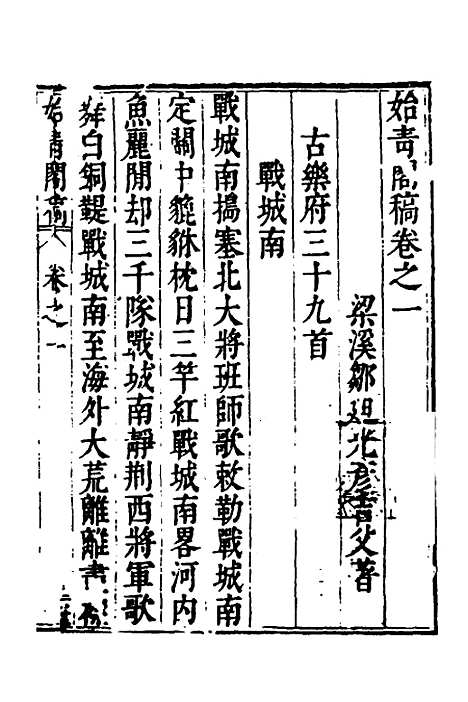 始青閣稿卷之一
梁溪鄒迪光彥吉父著
古樂府三十九首
戰城南
戰城南搗塞北大將班師歌敕勒戰城南
定關中貔貅枕日三竿紅戰城南畧河内
魚麗閒却三千隊戰城南靜荆西將軍歌
舞白銅鞮戰城南至海外大荒離離書
始青閣稿 卷之一